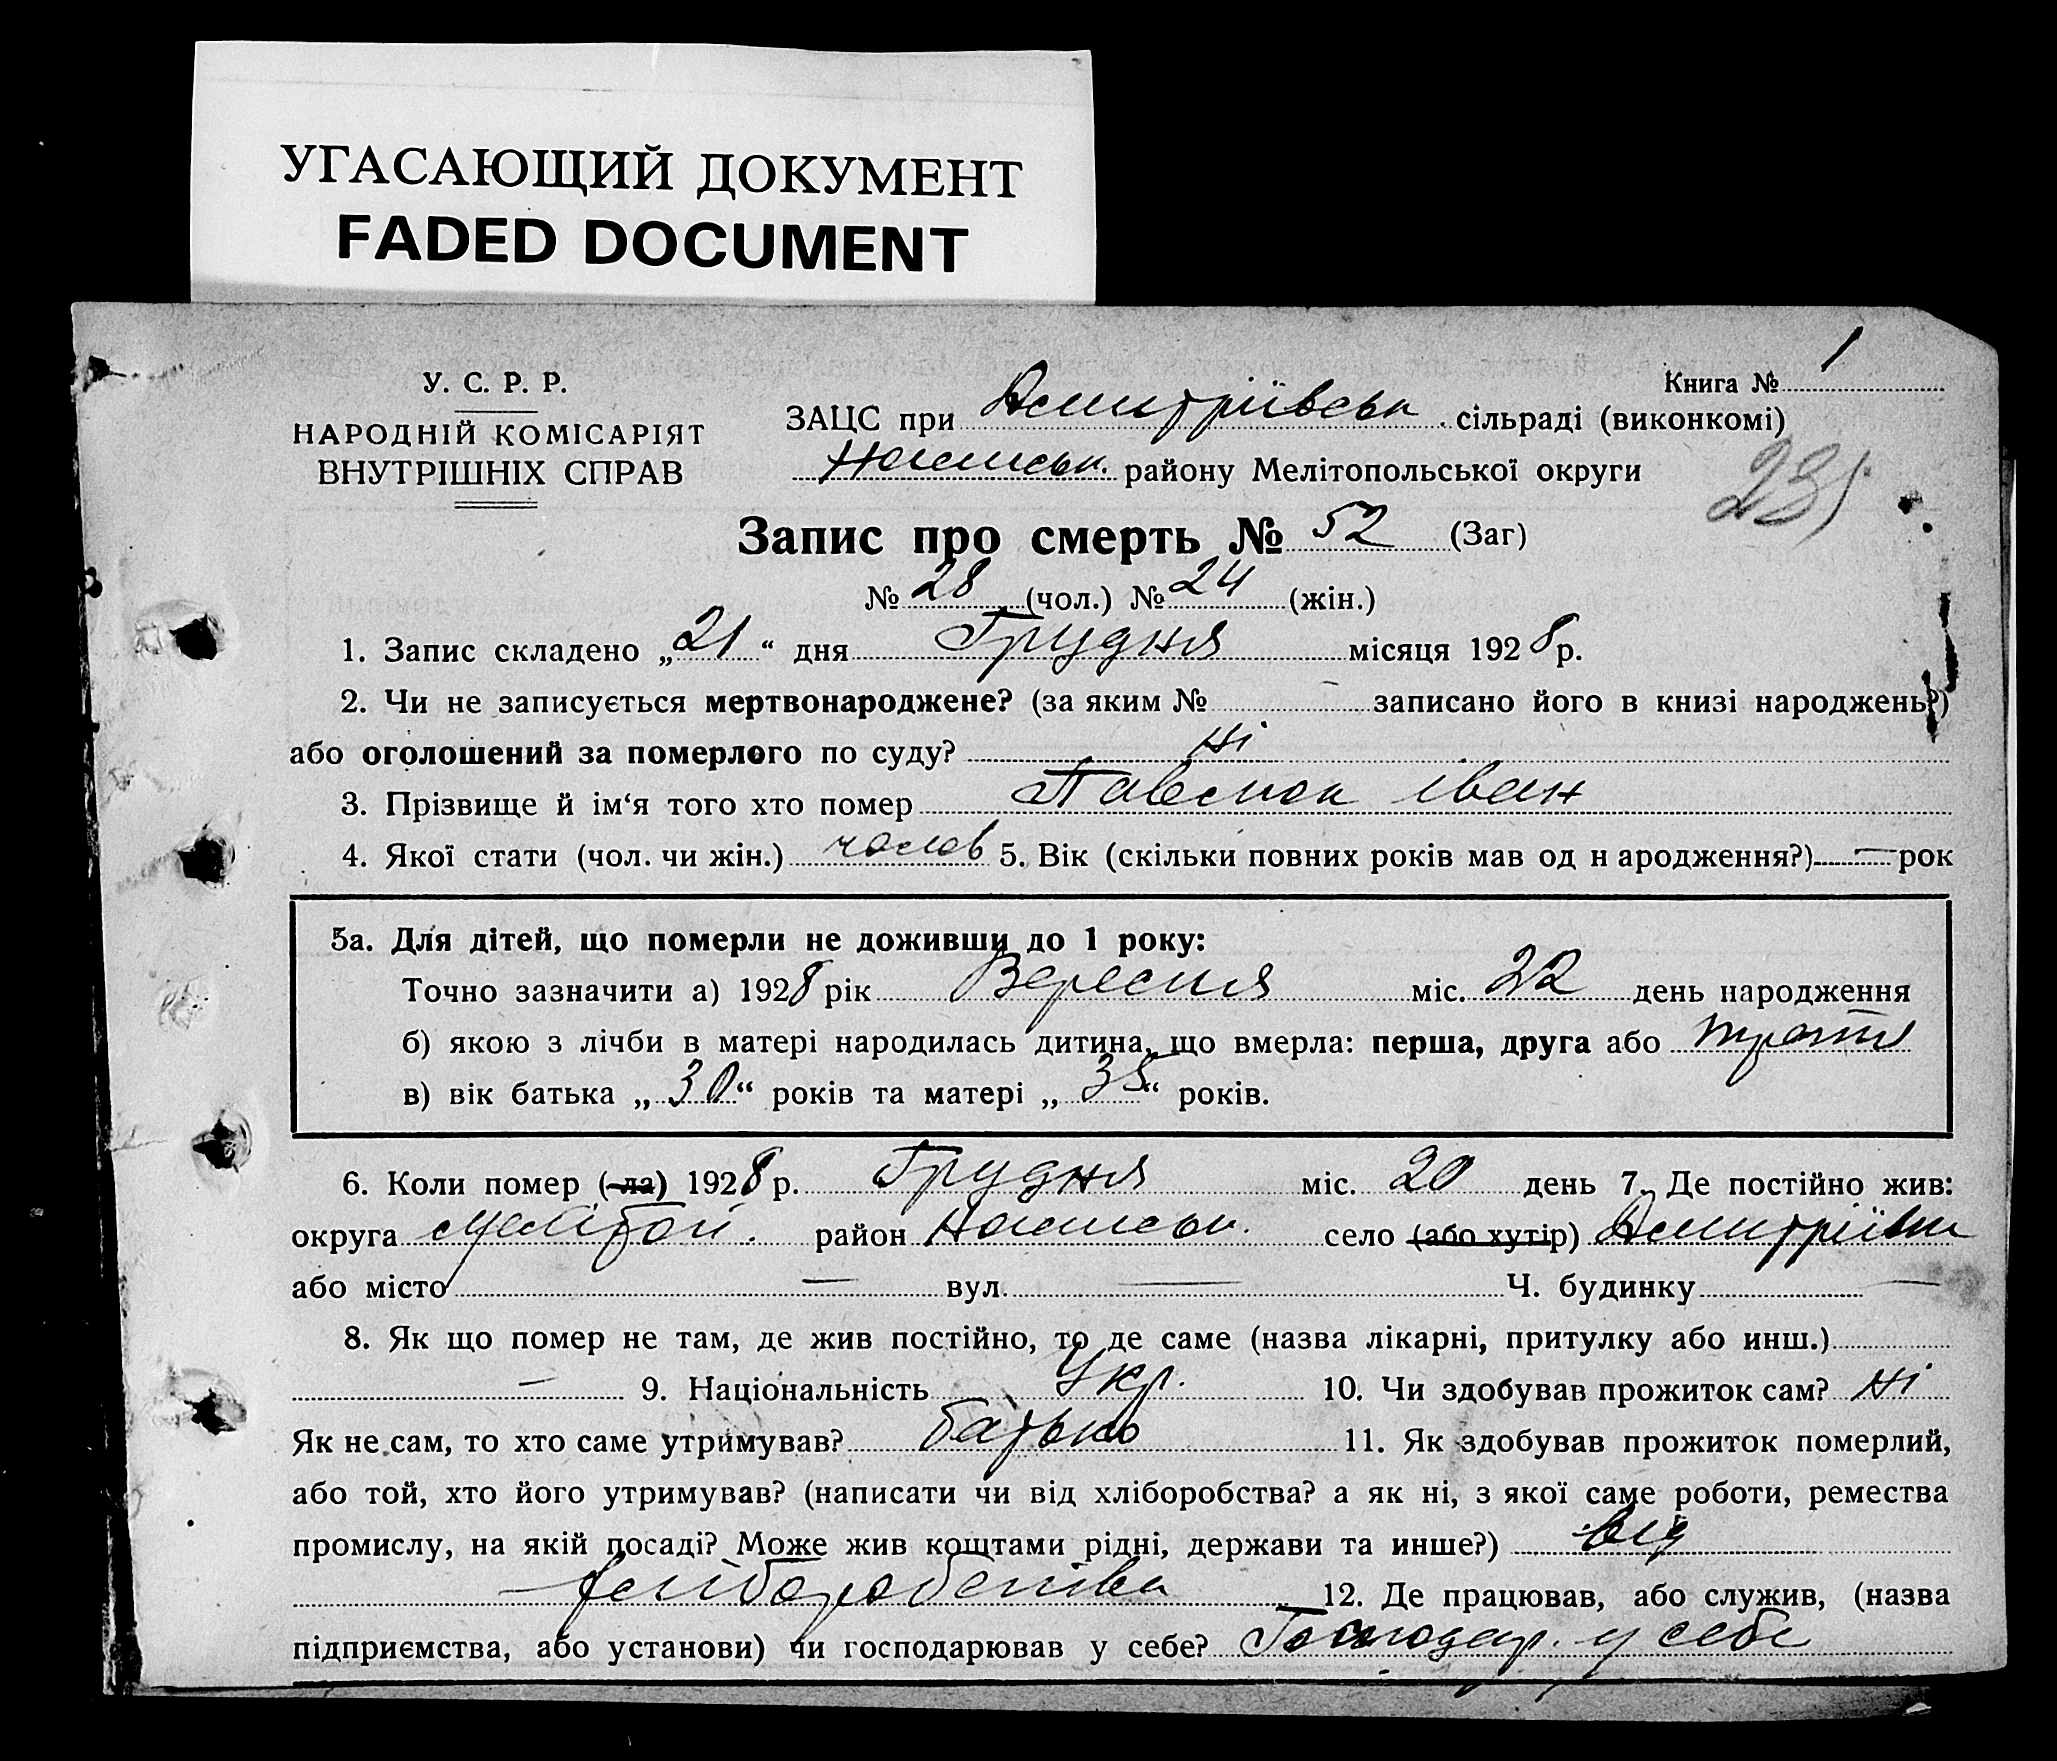 УГАСАЮЩИЙ ДОКУМЕНТ
FADED DOCUMENT
Книга № 1
У. С. Р. Р.
НАРОДНІЙ КОМІСАРІЯТ
ВНУТРІШНІХ СПРАВ
ЗАЦС при Дмитріївськ. сільраді (виконкомі)
району Мелітопольської округи
231
Запис про смерть № 52 (Заг)
№ 28 (чол.) № 24 (жін.)
1. Запис складено „21“ дня Грудня місяця 1928 р.
2. Чи не записується мертвонароджене? (за яким № — записано його в книзі народжень?)
або оголошений за померлого по суду? Ні
3. Прізвище й ім‘я того хто помер Павлюк Іван
4. Якої стати (чол. чи жін.) чолов 5. Вік (скільки повних років мав од н ародження?) — рок
5а. Для дітей, що померли не доживши до 1 року:
Точно зазначити а) 1928 рік Вересня міс. 22 день народження
б) якою з лічби в матері народилась дитина, що вмерла: перша, друга або третя
в) вік батька „30“ років та матері „35“ років.
6. Коли помер (-ла) 1928 р. Грудня міс. 20 день 7. Де постійно жив:
округа Меліт район село (або хутір) Дмитріївки
або місто — вул. — Ч. будинку —
8. Як що помер не там, де жив постійно, то де саме (назва лікарні, притулку або инш.)
— 9. Національність Укр. 10. Чи здобував прожиток сам? Ні
Як не сам, то хто саме утримував? батько 11. Як здобував прожиток померлий,
або той, хто його утримував? (написати чи від хліборобства? а як ні, з якої саме роботи, ремества
промислу, на якій посаді? Може жив коштами рідні, держави та инше?) від
хліборобства 12. Де працював, або служив, (назва
підприємства, або установи) чи господарював у себе? Господар. у себе